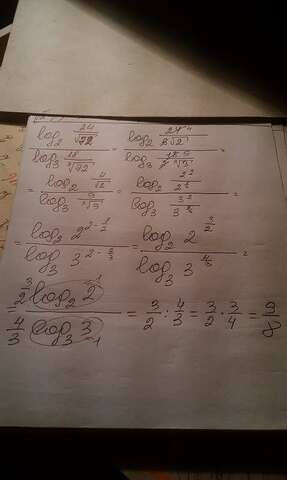 log₂ 24/√72 / log₃ 18/∛72 = log₂ 24⁴/6√2 / log₃ 18⁹/2∛9 =
= log₂ 4/√2 / log₃ 9/∛9 = log₂ 2²/2^(1/2) / log₃ 3²/3^(2/3) =
= log₂ 2^(2-1/2) / log₃ 3^(2-2/3) = log₂ 2^(3/2) / log₃ 3^(4/3) =
= 3/2 log₂ 2 ⁻¹ / 4/3 log₃ 3 ⁻¹ = 3/2 : 4/3 = 3/2 · 3/4 = 9/8